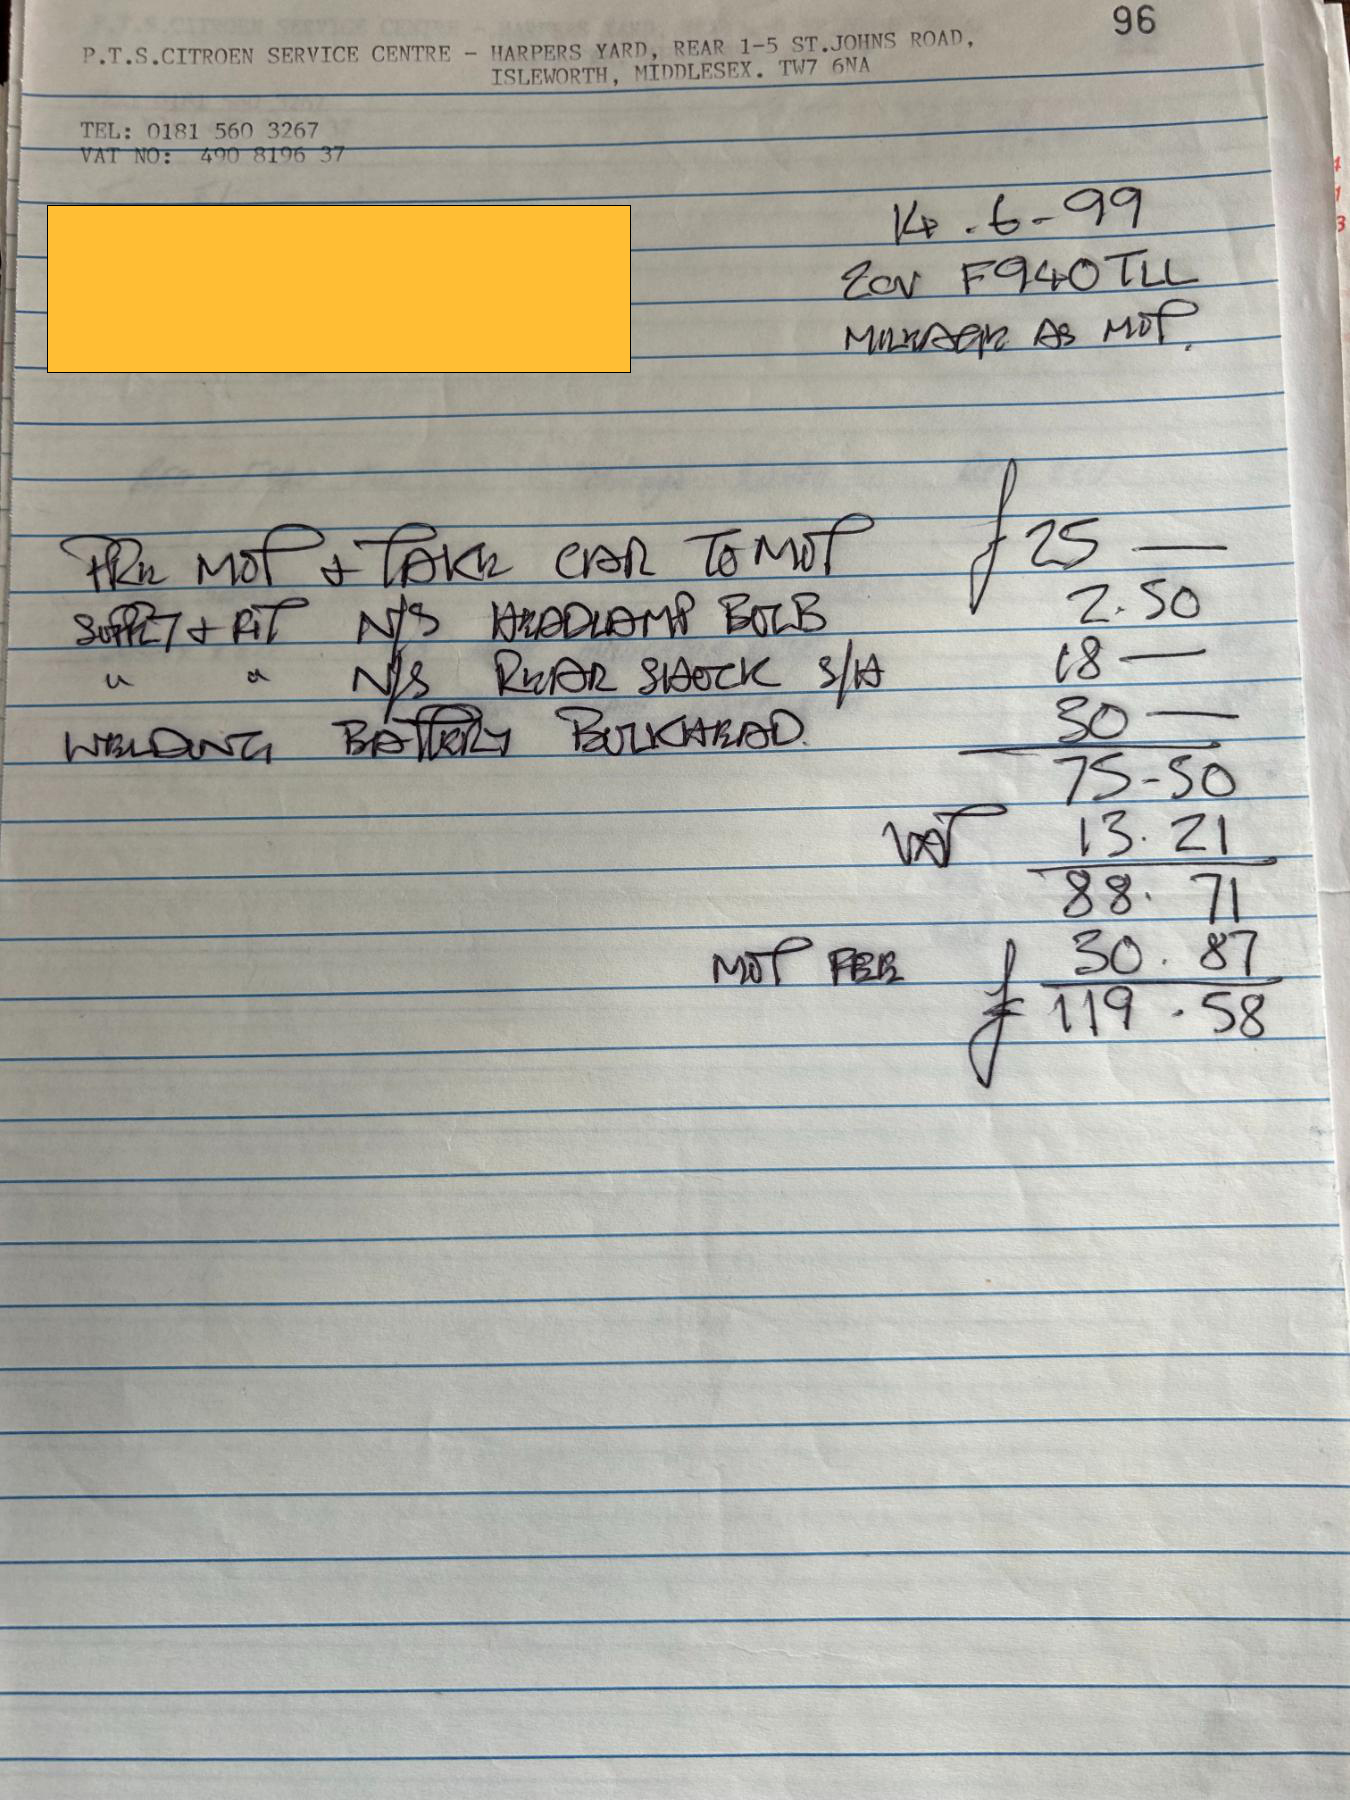 96
P.T.S.CITROEN SERVICE CENTRE - HARPERS YARD, REAR 1-5 ST.JOHNS ROAD,
ISLEWORTH, MIDDLESEX. TW7 6NA
TEL: 0181 560 3267
VAT NO: 490 8196 37
14.6-99
2CV F940TLL
MILEAGE AS MOT.
PRE MOT + TAKE CAR TO MOT £25 —
SUPPLY + FIT N/S HEADLAMP BULB 2.50
" " N/S REAR SHOCK S/H 18 —
WELDING BATTERY BULKHEAD. 30 —
75-50
VAT 13.21
88.71
MOT FEE 30.87
£119.58